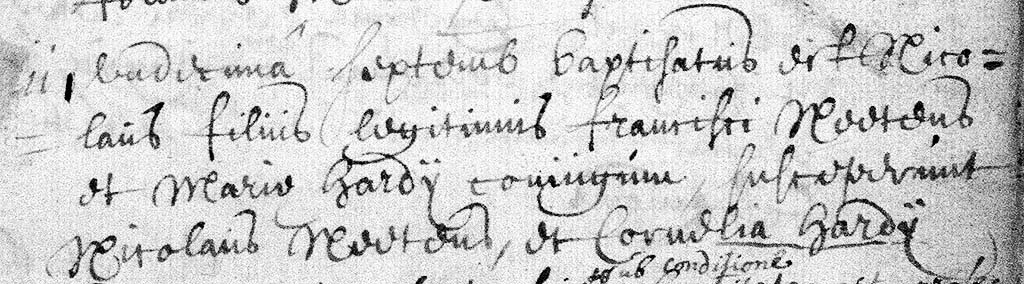 11, undecima septemb baptisatus est Nico=
laus filius legitimus francisci Meetens
et Marie Hardÿ coniugum, susceperunt
Nicolaus Meetens, et Cornelia Hardÿ
sub conditione